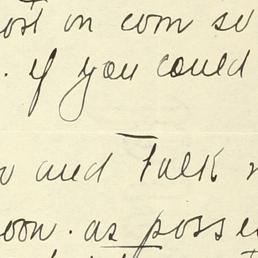 ost on com so
. if you could
and Talk
oon. as posse